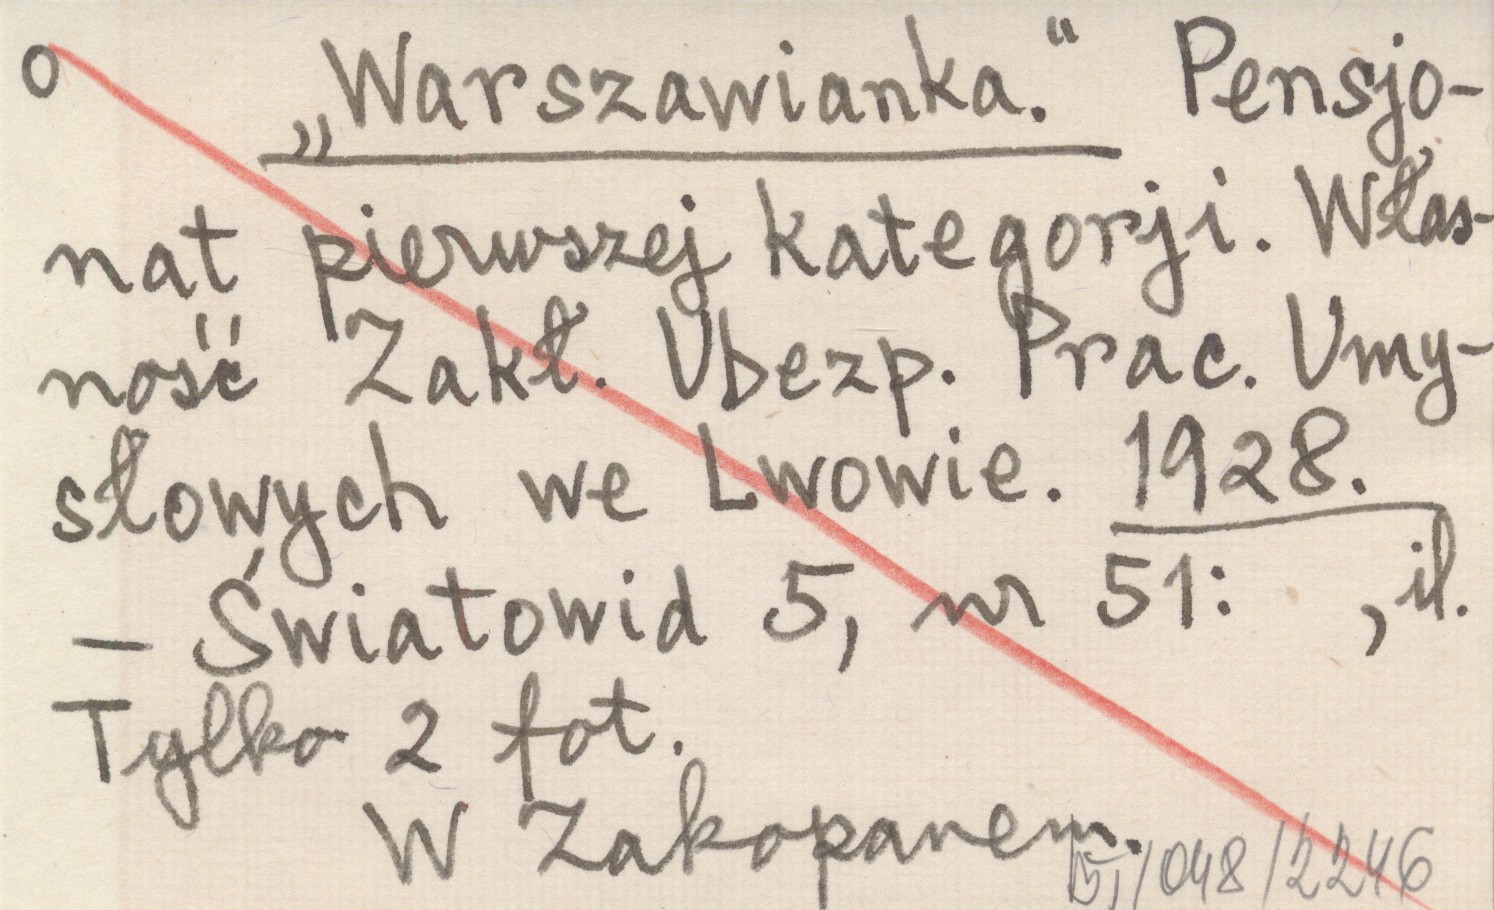 o „Warszawianka.“ Pensjo-
nat pierwszej kategorji. Włas-
ność Zakł. Ubezp. Prac. Umy-
słowych we Lwowie. 1928.
– Światowid 5, nr 51: , il.
Tylko 2 fot.
W Zakopanem.
/048/2246